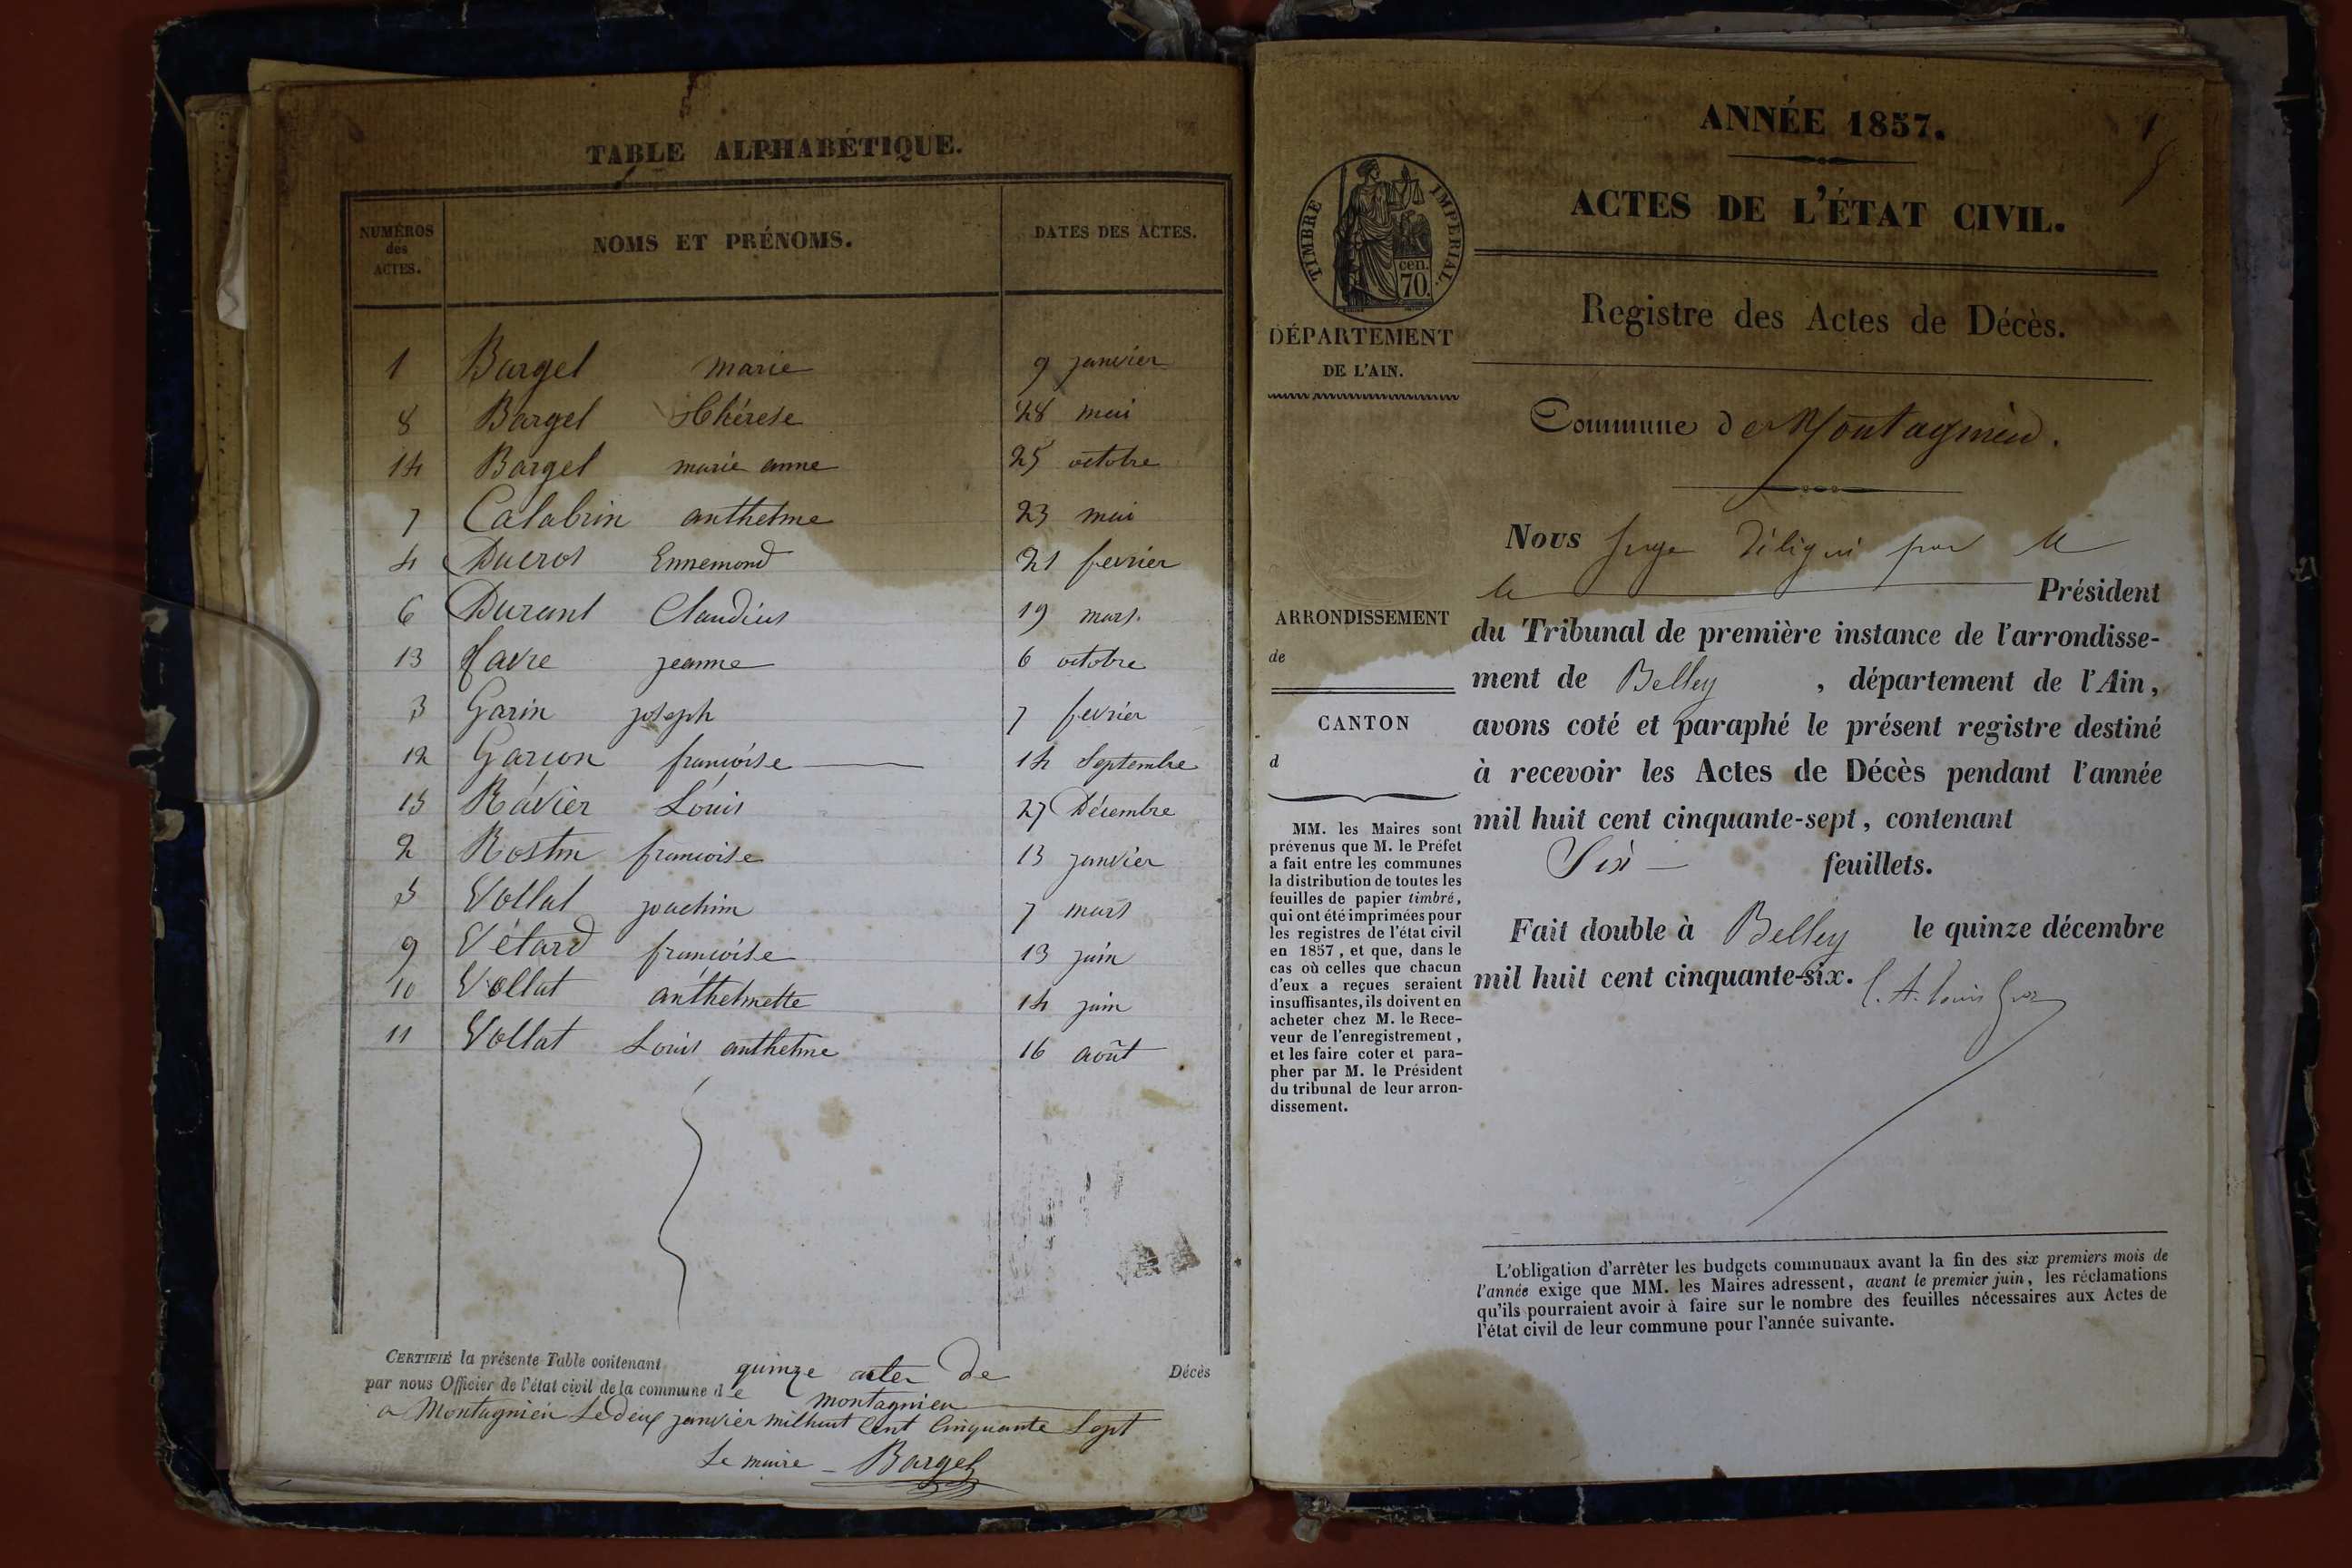 TABLE ALPHABÉTIQUE.
NUMÉROS des ACTES. NOMS ET PRÉNOMS. DATES DES ACTES.
1 Bargel marie 9 janvier
8 Bargel Thérese 28 mai
14 Bargel marie anne 25 octobre
7 Calabrin anthelme 23 mai
4 Ducros Ennemond 21 fevrier
6 Durant Claudius 19 mars.
13 favre jeanne 6 octobre
3 Garin joseph 7 fevrier
12 Garion françoise 14 Septembre
15 Ravier Louis 27 Décembre
2 Rostin françoise 13 janvier
5 Vollat joachim 7 mars
9 Vétard françoise 13 juin
10 Vollat anthelmette 14 juin
11 Vollat Louis anthelme 16 août
CERTIFIÉ la présente Table contenant quinze actes de Décès
par nous Officier de l'état civil de la commune de montagnieu
a Montagnieu Le deux janvier mil huit Cent Cinquante Sept
Le maire - Bargel
ANNÉE 1857.
1
ACTES DE L'ÉTAT CIVIL.
TIMBRE IMPERIAL.
cen.
70.
Registre des Actes de Décès.
DÉPARTEMENT
DE L'AIN.
Commune de Montagnieu.
Nous juge délégué par M
le Président
du Tribunal de première instance de l'arrondisse-
ment de Belley, département de l'Ain,
avons coté et paraphé le présent registre destiné
à recevoir les Actes de Décès pendant l'année
mil huit cent cinquante-sept, contenant
Six feuillets.
Fait double à Belley le quinze décembre
mil huit cent cinquante-six.
ARRONDISSEMENT
de
CANTON
d
MM. les Maires sont
prévenus que M. le Préfet
a fait entre les communes
la distribution de toutes les
feuilles de papier timbré,
qui ont été imprimées pour
les registres de l'état civil
en 1857, et que, dans le
cas où celles que chacun
d'eux a reçues seraient
insuffisantes, ils doivent en
acheter chez M. le Rece-
veur de l'enregistrement,
et les faire coter et para-
pher par M. le Président
du tribunal de leur arron-
dissement.
L'obligation d'arrêter les budgets communaux avant la fin des six premiers mois de
l'année exige que MM. les Maires adressent, avant le premier juin, les réclamations
qu'ils pourraient avoir à faire sur le nombre des feuilles nécessaires aux Actes de
l'état civil de leur commune pour l'année suivante.